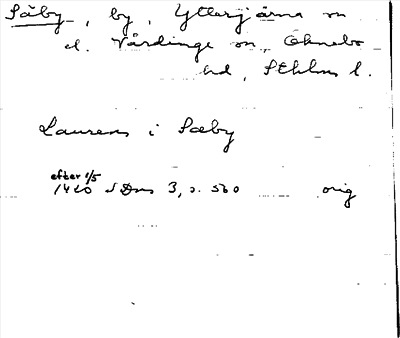 Säby, by, Ytterjärna sn
el. Vårdinge sn, Öknebo
hd, Sthlms l.
Laurens i Sæby
efter 1/5
1420 SDns 3, s. 560 orig